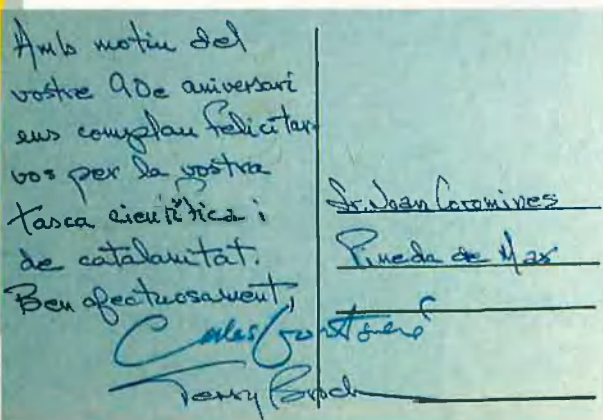 Amb motiu del
vostre 90e aniversari
ens complau felicitar-
vos per la vostra
tasca científica i
de catalanitat.
Ben afectuosament,
Carles
Terry
Sr. Joan Coromines
Pineda de Mar